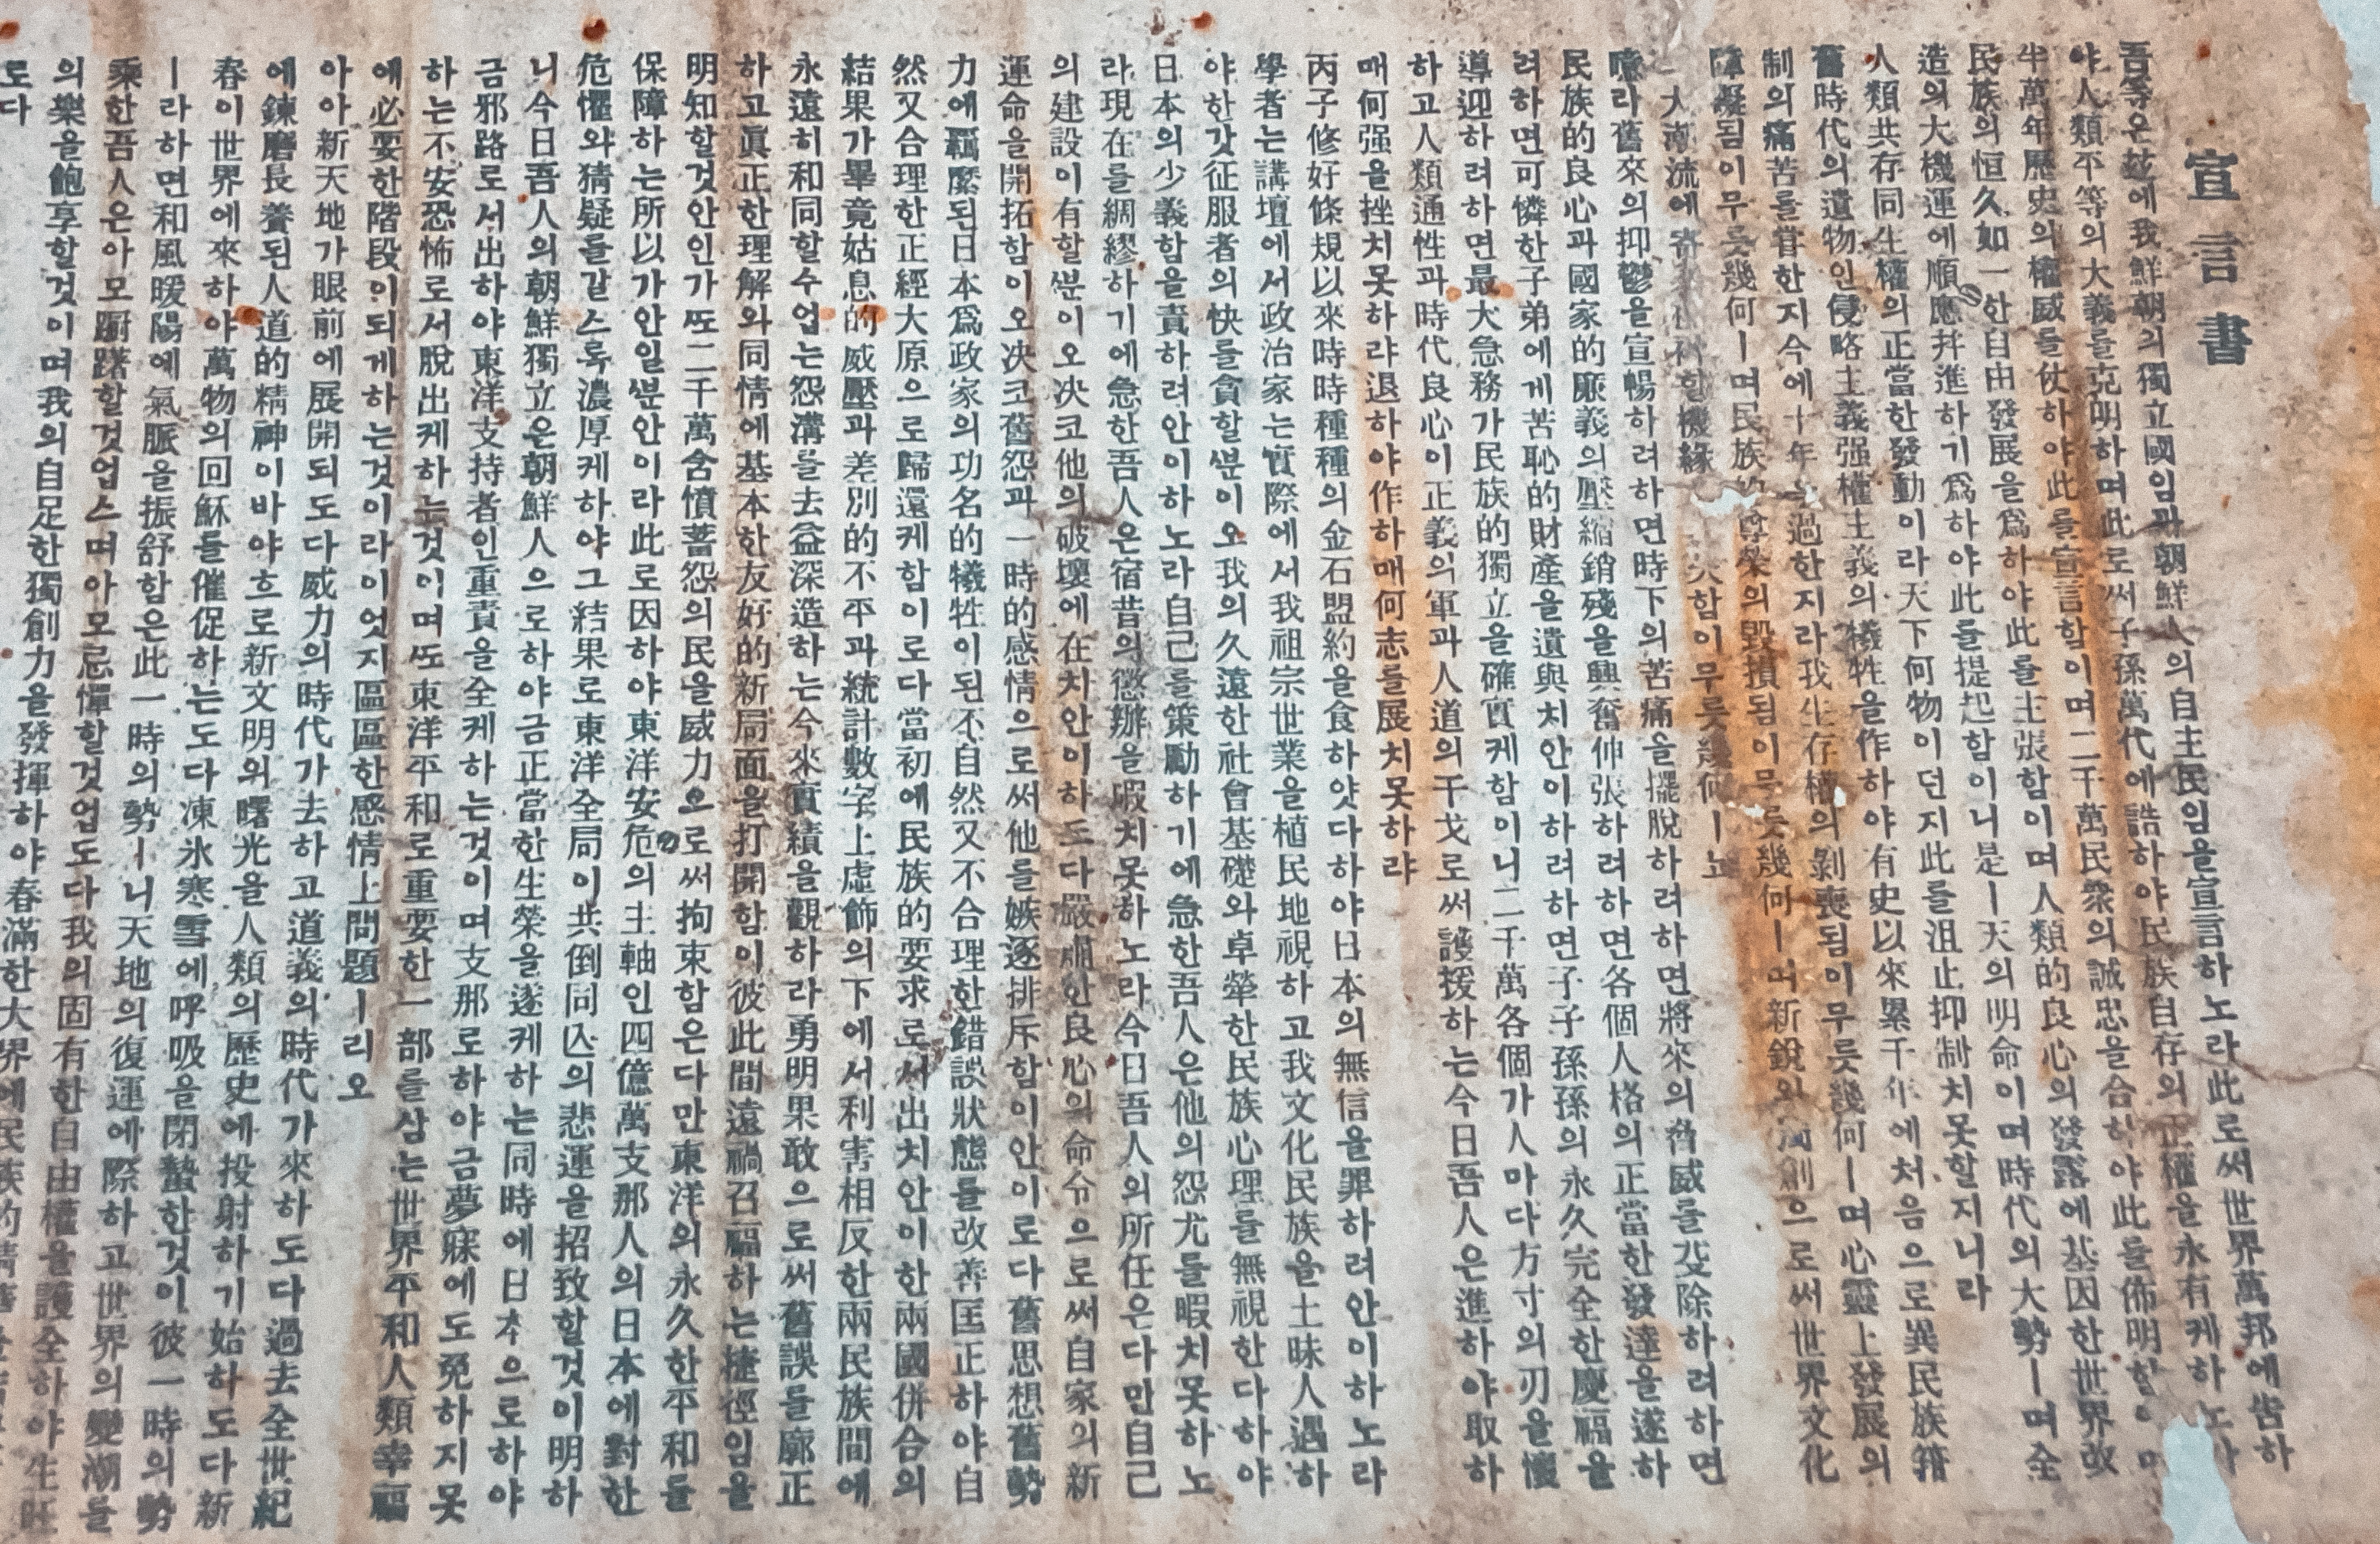 宣言書
吾等은玆에我鮮朝의獨立國임과朝鮮人의自主民임을宣言하노라此로써世界萬邦에告하
야人類平等의大義를克明하며此로써子孫萬代에誥하야民族自存의正權을永有케하노라
半萬年歷史의權威를仗하야此를宣言함이며二千萬民衆의誠忠을合하야此를佈明함
民族의恒久如一한自由發展을爲하야此를主張함이며人類的良心의發露에基因한世界改
造의大機運에順應幷進하기爲하야此를提起함이니是ㅣ天의明命이며時代의大勢ㅣ며全
人類共存同生權의正當한發動이라天下何物이던지此를沮止抑制치못할지니라
舊時代의遺物인侵略主義强權主義의犧牲을作하야有史以來累千年에처음으로異民族箝
制의痛苦를嘗한지今에十年을過한지라我生存權의剝喪됨이무릇幾何ㅣ며心靈上發展의
障礙됨이무릇幾何ㅣ며民族的尊榮의毁損됨이무릇幾何ㅣ며新銳와獨創으로써世界文化
大潮流에寄 할機緣 失함이무릇幾何ㅣ뇨
噫라舊來의抑鬱을宣暢하려하면時下의苦痛을擺脫하려하면將來의脅威를芟除하려하면
民族的良心과國家的廉義의壓縮銷殘을興奮伸張하려하면各個人格의正當한發達을遂하
려하면可憐한子弟에게苦恥的財產을遺與치안이하려하면子子孫孫의永久完全한慶福을
導迎하려하면最大急務가民族的獨立을確實케함이니二千萬各個가人마다方寸의刃을懷
하고人類通性과時代良心이正義의軍과人道의干戈로써護援하는今日吾人은進하야取하
매何强을挫치못하랴退하야作하매何志를展치못하랴
丙子修好條規以來時時種種의金石盟約을食하얏다하야日本의無信을罪하려안이하노라
學者는講壇에서政治家는實際에서我祖宗世業을植民地視하고我文化民族을土昧人遇하
야한갓征服者의快를貪할ᄲᅮᆫ이오我의久遠한社會基礎와卓犖한民族心理를無視한다하야
日本의少義함을責하려안이하노라自己를策勵하기에急한吾人은他의怨尤를暇치못하노
라現在를綢繆하기에急한吾人은宿昔의懲辦을暇치못하노라今日吾人의所任은다만自己
의建設이有할ᄲᅮᆫ이오決코他의破壞에在치안이하도다嚴肅한良心의命令으로써自家의新
運命을開拓함이오決코舊怨과一時的感情으로써他를嫉逐排斥함이안이로다舊思想舊勢
力에羈縻된日本爲政家의功名的犧牲이된不自然又不合理한錯誤狀態를改善匡正하야自
然又合理한正經大原으로歸還케함이로다當初에民族的要求로서出치안이한兩國併合의
結果가畢竟姑息的威壓과差別的不平과統計數字上虛飾의下에서利害相反한兩民族間에
永遠히和同할수업는怨溝를去益深造하는今來實績을觀하라勇明果敢으로써舊誤를廓正
하고眞正한理解와同情에基本한友好的新局面을打開함이彼此間遠禍召福하는捷徑임을
明知할것안인가ᄯᅩ二千萬含憤蓄怨의民을威力으로써拘束함은다만東洋의永久한平和를
保障하는所以가안일ᄲᅮᆫ안이라此로因하야東洋安危의主軸인四億萬支那人의日本에對한
危懼와猜疑를갈스록濃厚케하야그結果로東洋全局이共倒同亡의悲運을招致할것이明하
니今日吾人의朝鮮獨立은朝鮮人으로하야금正當한生榮을遂케하는同時에日本으로하야
금邪路로서出하야東洋支持者인重責을全케하는것이며支那로하야금夢寐에도免하지못
하는不安恐怖로서脫出케하는것이며ᄯᅩ東洋平和로重要한一部를삼는世界平和人類幸福
에必要한階段이되게하는것이라이엇지區區한感情上問題ㅣ리오
아아新天地가眼前에展開되도다威力의時代가去하고道義의時代가來하도다過去全世紀
에鍊磨長養된人道的精神이바야흐로新文明의曙光을人類의歷史에投射하기始하도다新
春이世界에來하야萬物의回穌를催促하는도다凍氷寒雪에呼吸을閉蟄한것이彼一時의勢
ㅣ라하면和風暖陽에氣脈을振舒함은此一時의勢ㅣ니天地의復運에際하고世界의變潮를
乘한吾人은아모躕躇할것업스며아모忌憚할것업도다我의固有한自由權을護全하야生旺
의樂을飽享할것이며我의自足한獨創力을發揮하야春滿한大界에民族的精
도다